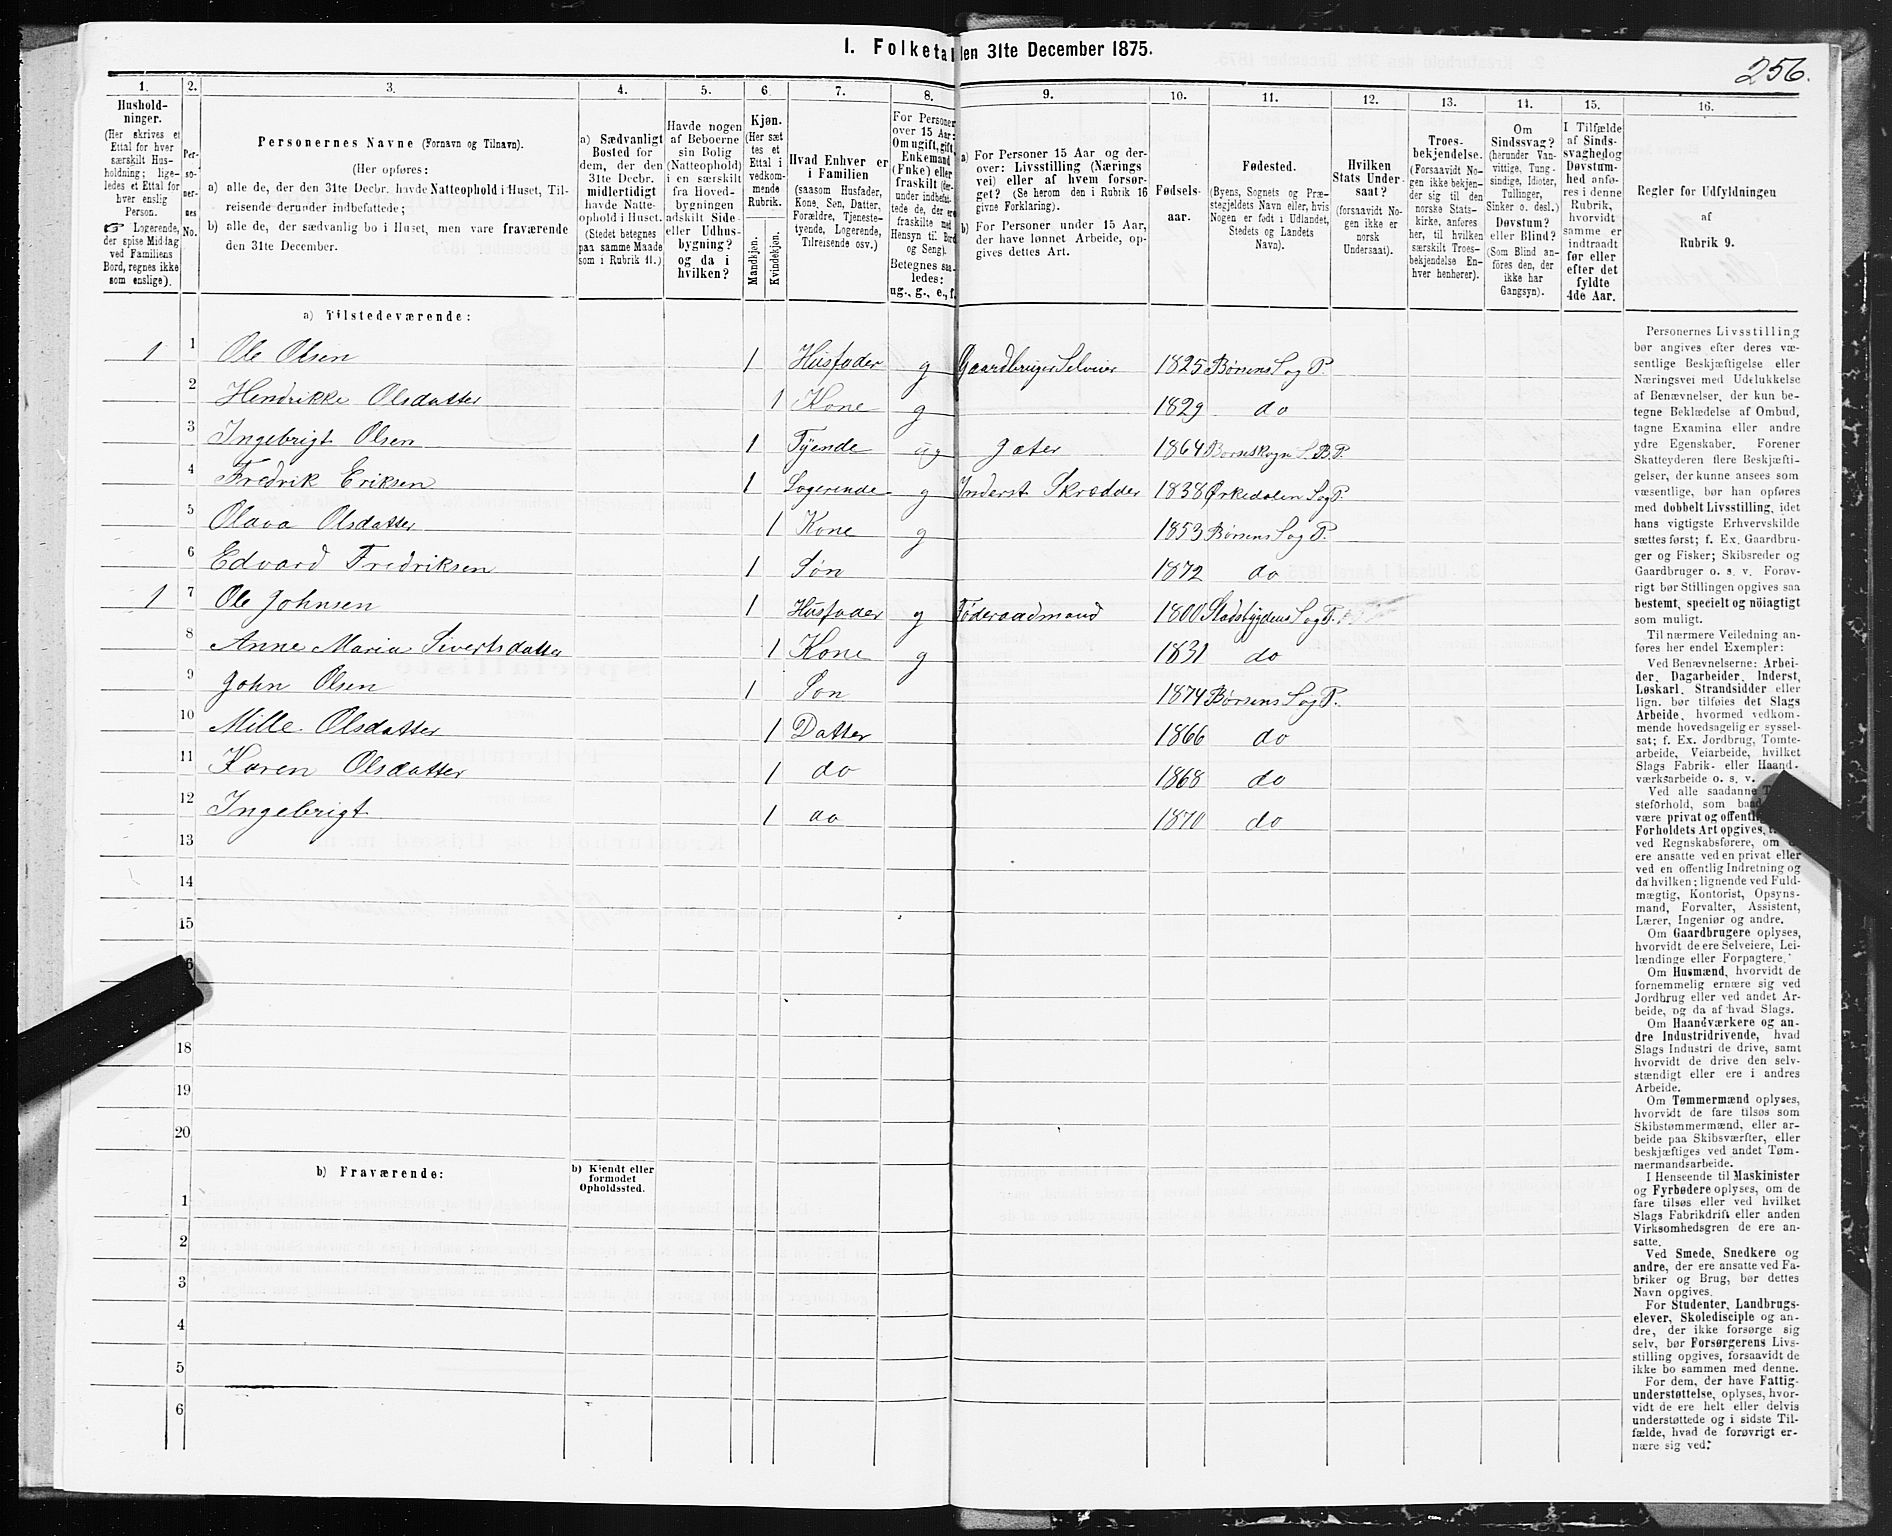 I. Folketal den 31te December 1875.
256.
1. 2. 3. 4. 5. 6. 7. 8. 9. 10. 11. 12. 13. 14. 15. 16.
Hushold-
ninger.
(Her skrives et
Ettal for hver
særskilt Hus-
holdning; lige-
ledes et Ettal for
hver enslig
Person.
☞ Logerende,
der spise Middag
ved Familiens
Bord, regnes ikke
som enslige).
Per-
so-
ner-
nes
No.
Personernes Navne (Fornavn og Tilnavn).
(Her opføres:
a) alle de, der den 31te Decbr. havde Natteophold i Huset, Til-
reisende derunder indbefattede;
b) alle de, der sædvanlig bo i Huset, men vare fraværende
den 31te December.
a) Sædvanligt
Bosted for
dem, der den
31te Decbr.
midlertidigt
havde Natte-
ophold i Huset.
(Stedet betegnes
paa samme Maade
som i Rubrik 11.)
Havde nogen
af Beboerne
sin Bolig
(Natteophold)
i en særskilt
fra Hoved-
bygningen
adskilt Side-
eller Udhus-
bygning?
og da i
hvilken?
Kjøn.
(Her sæt
tes et
Ettal i
vedkom-
mende
Rubrik.
Mandkjøn.
Kvindekjøn.
Hvad Enhver er
i Familien
(saasom Husfader,
Kone, Søn, Datter,
Forældre, Tjeneste-
tyende, Logerende,
Tilreisende osv.)
For Personer
over 15 Aar:
Om ugift, gift,
Enkemand
(Enke) eller
fraskilt (der-
under indbefat-
tede de, der ere
fraskilte med
Hensyn til Bord
og Seng).
Betegnes saa-
ledes:
ug., g., e., f.
a) For Personer 15 Aar og der-
over: Livsstilling (Nærings
vei) eller af hvem forsør-
get? (Se herom den i Rubrik 16
givne Forklaring).
b) For Personer under 15 Aar,
der have lønnet Arbeide, op-
gives dettes Art.
Fødsels-
aar.
Fødested.
(Byens, Sognets og Præ-
stegjeldets Navn eller, hvis
Nogen er født i Udlandet,
Stedets og Landets
Navn).
Hvilken
Stats Under-
saat?
(forsaavidt No-
gen ikke er
norsk
Undersaat).
Troes-
bekjendelse.
(Forsaavidt No-
gen ikke bekjen-
der sig til den
norske Stats-
kirke, anføres
her, til hvilken
særskilt Troes-
bekjendelse En-
hver henhører).
Om
Sindssvag?
(herunder Van-
vittige, Tung-
sindige, Idioter,
Tullinger,
Sinker o. desl.)
Døvstum?
eller Blind?
(Som Blind an-
føres den, der
ikke har
Gangsyn).
I Tilfælde
af Sinds-
svaghed og
Døvstum-
hed anfø-
res i denne
Rubrik,
hvorvidt
samme er
indtraadt
før eller
efter det
fyldte
4de Aar.
Regler for Udfyldningen
af
Rubrik 9.
a) Tilstedeværende:
1 1 Ole Olsen 1 Husfader g Gaardbruger Selveier 1825 Børsens S og P.
2 Hendrikke Olsdatter 1 Kone g 1829 do
3 Ingebrigt Olsen 1 Tyende ug gæter 1864 Børseskogn S. B. P.
4 Fredrik Eriksen 1 Logerende g Inderst Skrædder 1838 Ørkedalen S og P.
5 Olava Olsdatter 1 Kone g 1853 Børsens S og P.
6 Edvard Fredriksen 1 Søn 1872 do
1 7 Ole Johnsen 1 Husfader g Føderaadmand 1800 Stadsbygdens S og P.
8 Anne Maria Sivertsdatter 1 Kone g 1831 do
9 John Olsen 1 Son 1874 Børsens S og P.
10 Mille Olsdatter 1 Datter 1866 do
11 Karen Olsdatter 1 do 1868 do
12 Ingebrigt 1 do 1870 do
13
14
15
18
19
20
b) Fraværende:
b) Kjendt eller
formodet
Opholdssted.
1
2
3
4
5
6
Personernes Livsstilling
bør angives efter deres væ-
sentlige Beskjæftigelse eller
Næringsvei med Udelukkelse
af Benævnelser, der kun be-
tegne Beklædelse af Ombud,
tagne Examina eller andre
ydre Egenskaber. Forener
Skatteyderen flere Beskjæfti-
gelser, der kunne ansees som
væsentlige, bør han opføres
med dobbelt Livsstilling, idet
hans vigtigste Erhvervskilde
sættes først; f. Ex. Gaardbru-
ger og Fisker; Skibsreder og
Gaardbruger o. s. v. Forøv-
rigt bør Stillingen opgives saa
bestemt, specielt og nöiagtigt
som muligt.
Til nærmere Veiledning an-
føres her endel Exempler:
Ved Benævnelserne: Arbei-
der, Dagarbeider, Inderst,
Løskarl, Strandsidder eller
lign. bør tilføies det Slags
Arbeide, hvormed vedkom-
mende hovedsagelig er syssel-
sat; f. Ex. Jordbrug, Tomte-
arbeide, Veiarbeide, hvilket
Slags Fabrik- eller Haand-
værksarbeide o. s. v.
Ved alle saadanne
steforhold, som
være privat og offentlig
Forholdets Art opgives,
ved Regnskabsførere, om
ere ansatte ved en privat eller
ved en offentlig Indretning og
da hvilken; lignende ved Fuld-
mægtig, Kontorist, Opsyns-
mand, Forvalter, Assistent,
Lærer, Ingeniør og andre.
Om Gaardbrugere oplyses,
hvorvidt de ere Selveiere, Lei-
lændinge eller Forpagtere.
Om Husmænd, hvorvidt de
fornemmelig ernære sig ved
Jordbrug eller ved andet Ar-
beide, og da af hvad Slags.
Om Haandværkere og an-
dre Industridrivende, hvad
Slags Industri de drive, samt
hvorvidt de drive den selv-
stændigt eller ere i andres
Arbeide.
Om Tømmermænd oplyses,
hvorvidt de fare tilsøs som
Skibstømmermænd, eller ar-
beide paa Skibsværfter, eller
beskjæftiges ved andet Tøm-
mermandsarbeide.
I Henseende til Maskinister
og Fyrbødere oplyses, om de
fare tilsøs eller ved hvilket
Slags Fabrikdrift eller anden
Virksomhedsgren de ere an-
satte.
Ved Smede, Snedkere og
andre, der ere ansatte ved Fa-
briker og Brug, bør dettes
Navn opgives.
For Studenter, Landbrugs-
elever, Skoledisciple og an-
dre, der ikke forsørge sig
selv, bør Forsørgerens Livs-
stilling opgives, forsaavidt de
ikke bo sammen med denne.
For dem, der have Fattig-
understøttelse, oplyses, hvor-
vidt de ere helt eller delvis
understøttede og i sidste Til-
fælde, hvad de forøvrigt er-
nære sig ved.